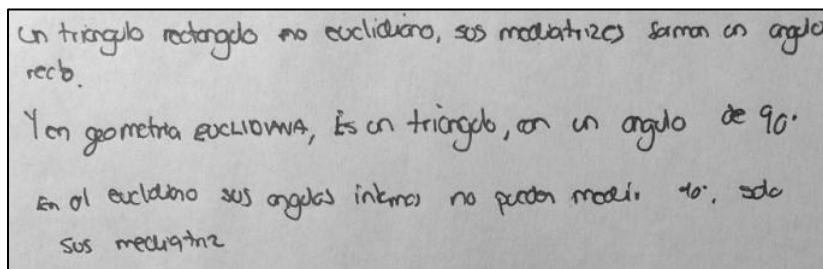 Un triángulo rectangulo no euclidiano, sus mediatrizes forman un angulo
recto.
Y en geometria EUCLIDIANA, Es un triángulo, con un angulo de 90°
En el euclidiano sus angulos internos no pueden medir 90°, solo
sus mediatriz